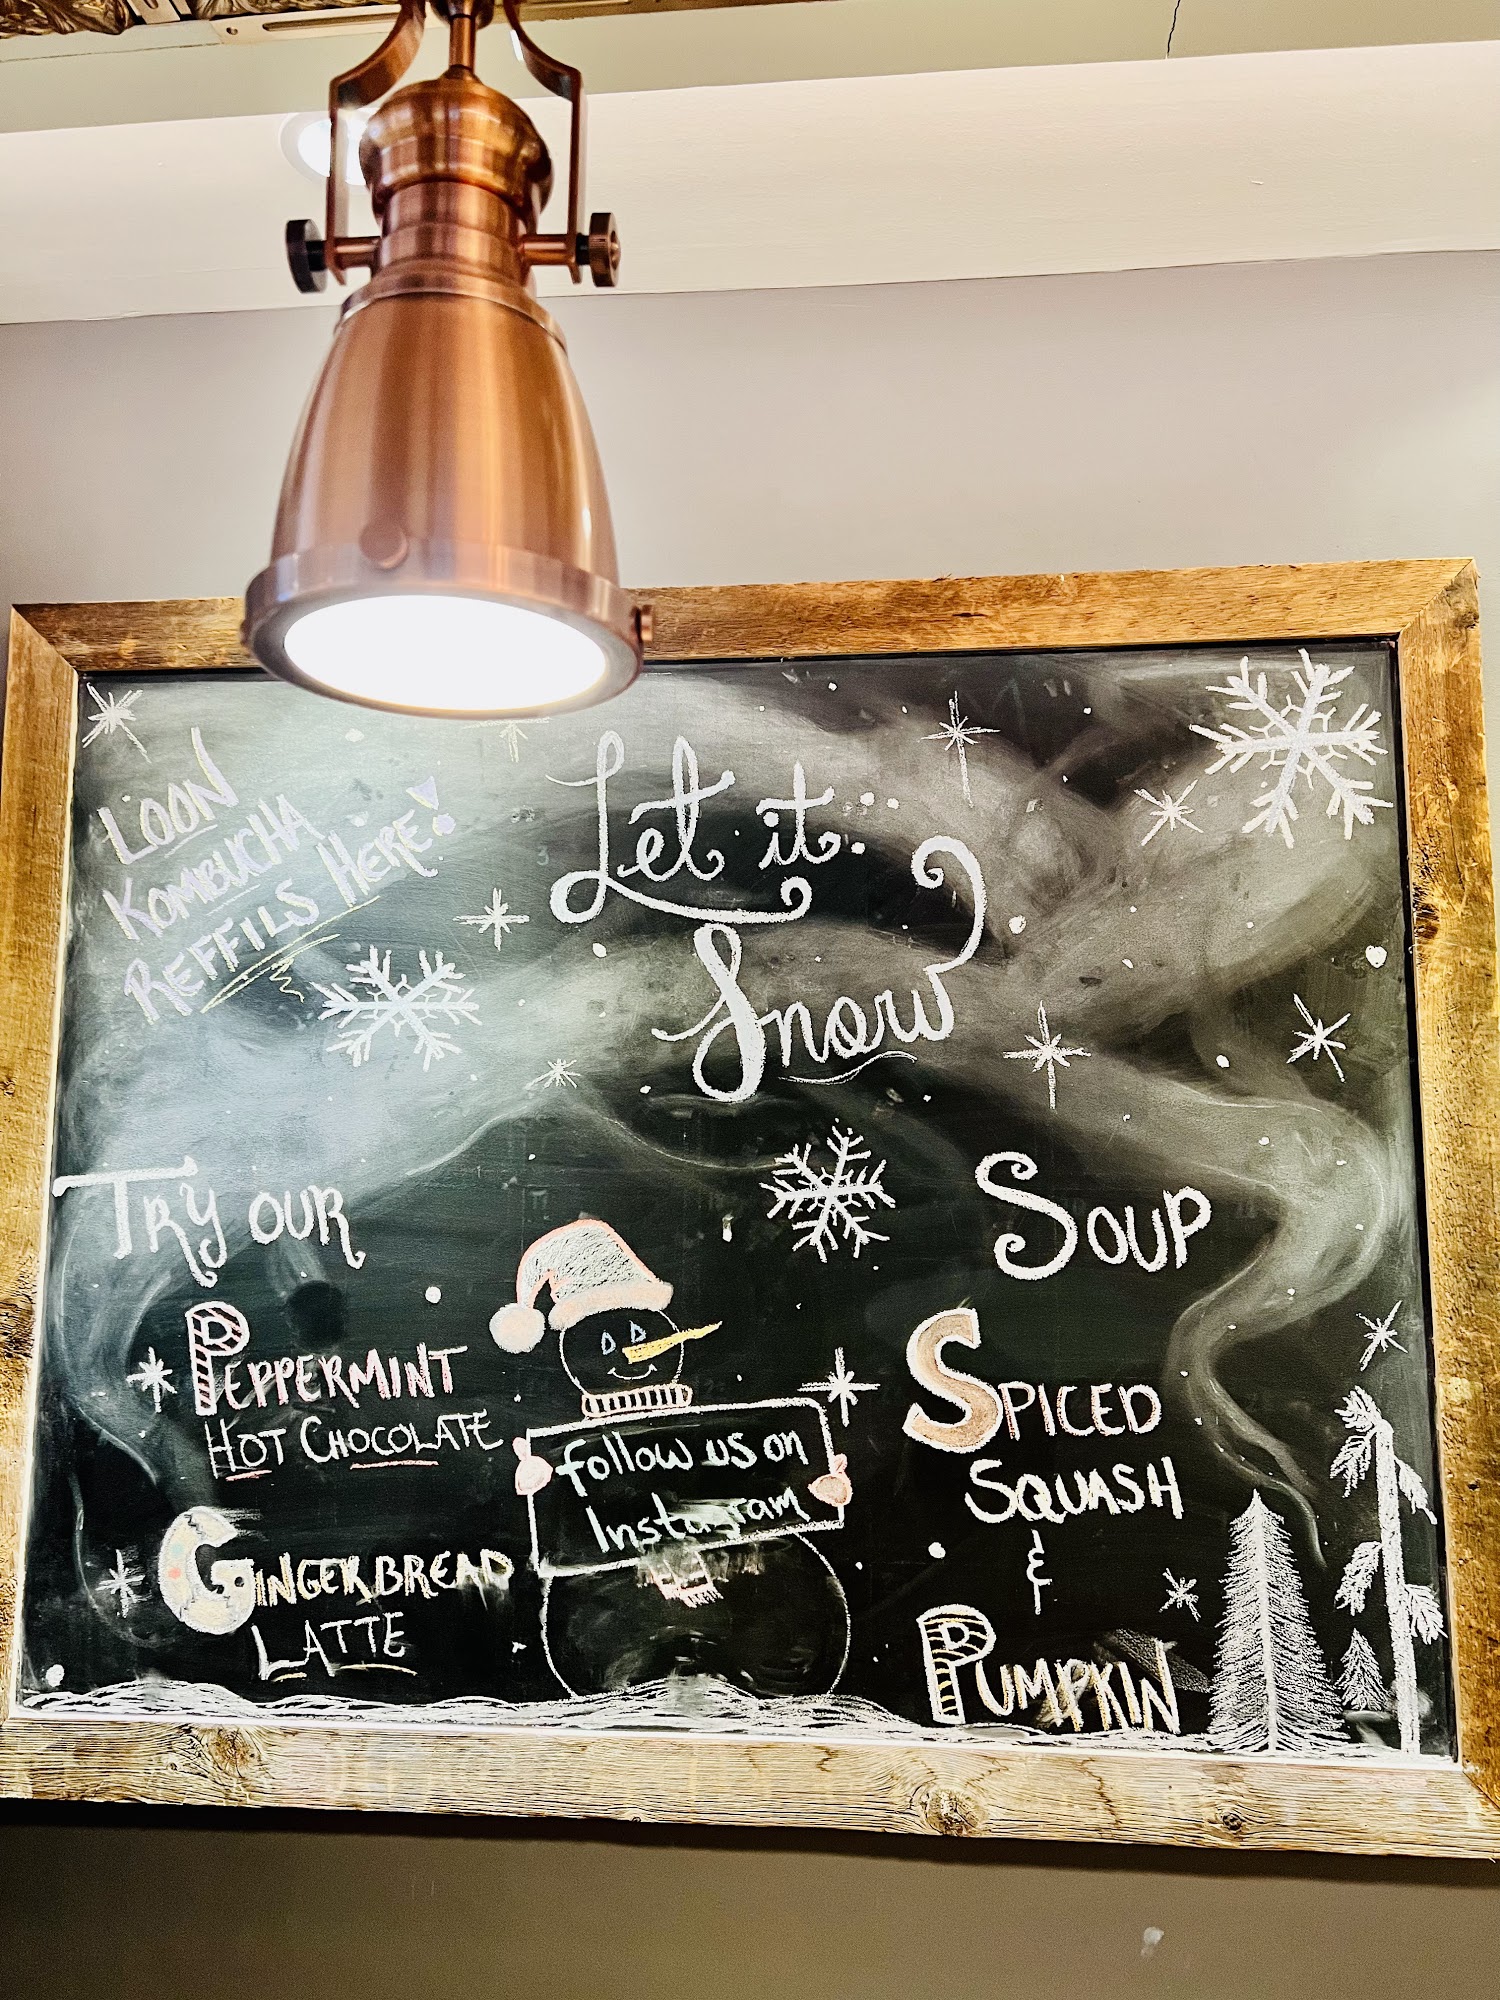 LOON
KOMBUCHA
REFFILS HERE!
Let it
Snow
TRY OUR
PEPPERMINT
HOT CHOCOLATE
GINGERBREAD
LATTE
follow us on
Instagram
SOUP
SPICED
SQUASH
&
PUMPKIN